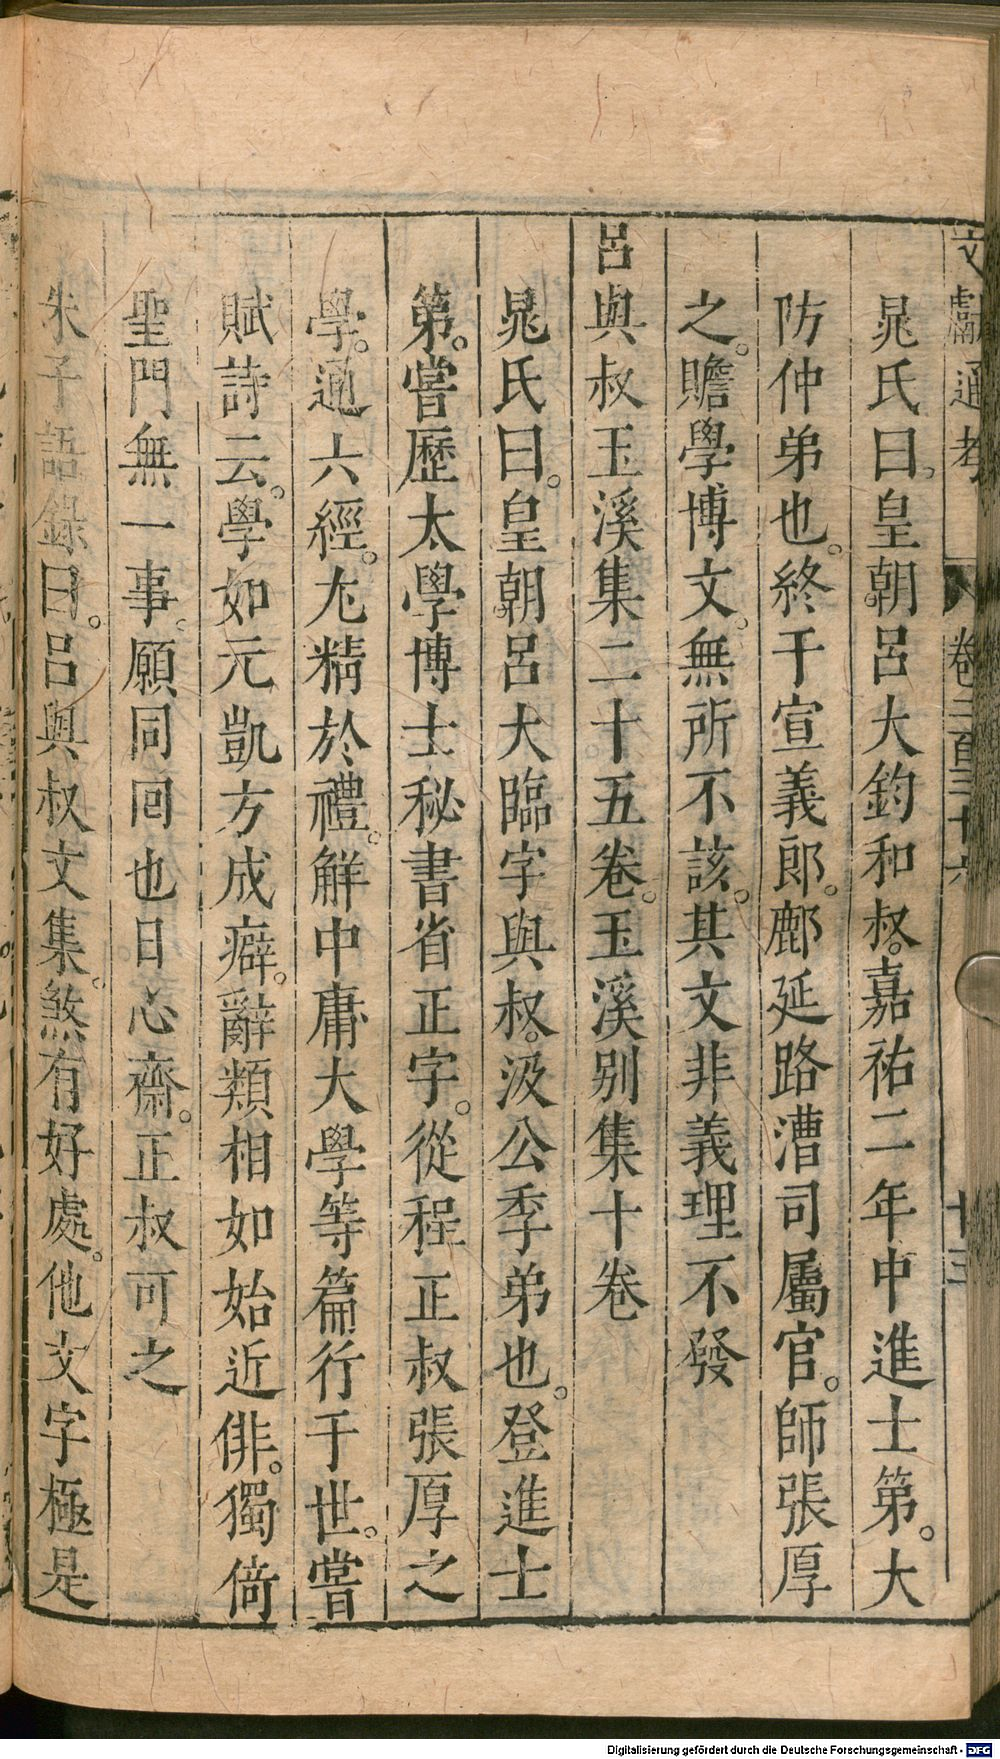 文獻通考 卷二百三十六 十三
晁氏曰。皇朝。呂大鈞和叔。嘉祐二年中進士第。大
防仲弟也。終于宣義郎。鄜延路漕司屬官。師張厚
之。贍學博文。無所不該。其文非義理不發
呂與叔玉溪集二十五卷。玉溪別集十卷
晁氏曰。皇朝。呂大臨字與叔。汲公季弟也。登進士
第。嘗歷太學博士秘書省正字。從程正叔張厚之
學。通六經。尤精於禮。解中庸大學等篇行于世。嘗
賦詩云。學如元凱方成癖。辭類相如始近俳。獨倚
聖門無一事。願同回也日心齋。正叔可之
朱子語錄曰。呂與叔文集。煞有好處。他文字極是
Digitalisierung gefördert durch die Deutsche Forschungsgemeinschaft - DFG